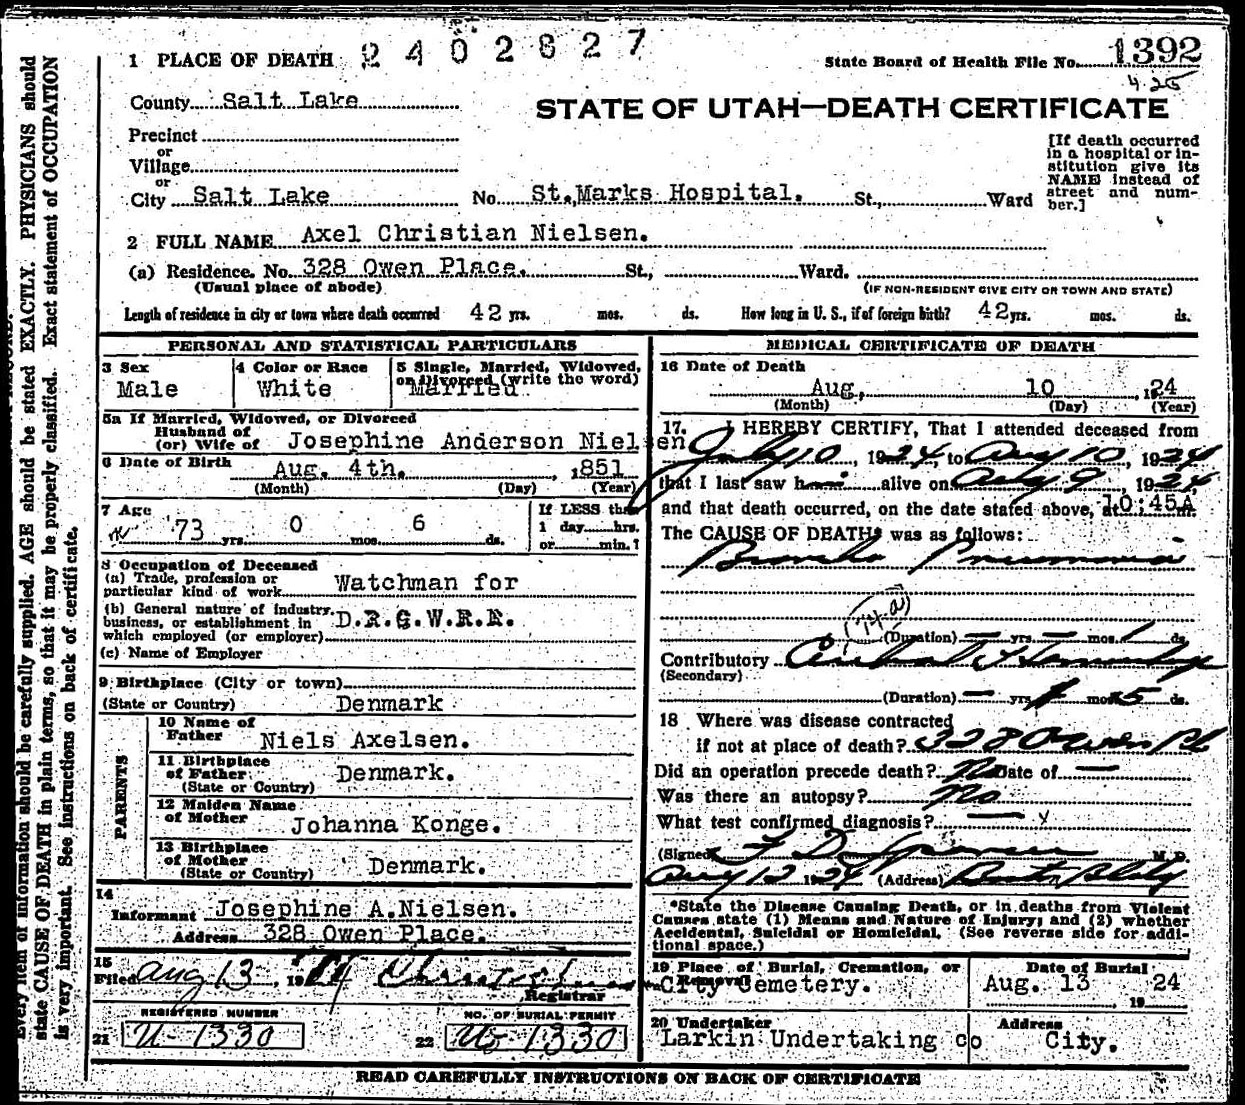 2402627
1 PLACE OF DEATH
State Board of Health File No. 1392
4-25
County Salt Lake
STATE OF UTAH—DEATH CERTIFICATE
Precinct
or
Village
or
City Salt Lake No. St. Marks Hospital. St., Ward
[If death occurred
in a hospital or in-
stitution give its
NAME instead of
street and num-
ber.]
2 FULL NAME Axel Christian Nielsen.
(a) Residence. No. 328 Owen Place. St., Ward.
(Usual place of abode) (IF NON-RESIDENT GIVE CITY OR TOWN AND STATE)
Length of residence in city or town where death occurred 42 yrs. mos. ds. How long in U. S., if of foreign birth? 42 yrs. mos. ds.
PERSONAL AND STATISTICAL PARTICULARS
3 Sex
Male
4 Color or Race
White
5 Single, Married, Widowed,
or Divorced (write the word)
Married
5a If Married, Widowed, or Divorced
Husband of
(or) Wife of Josephine Anderson Nielsen
6 Date of Birth
Aug. 4th. , 1851
(Month) (Day) (Year)
7 Age
73 yrs. 0 mos. 6 ds.
If LESS than
1 day hrs.
or min.?
8 Occupation of Deceased
(a) Trade, profession or
particular kind of work Watchman for
(b) General nature of industry,
business, or establishment in
which employed (or employer) D.R.G.W.R.R.
(c) Name of Employer
9 Birthplace (City or town)
(State or Country) Denmark
PARENTS
10 Name of
Father Niels Axelsen.
11 Birthplace
of Father
(State or Country) Denmark.
12 Maiden Name
of Mother Johanna Konge.
13 Birthplace
of Mother
(State or Country) Denmark.
14
Informant Josephine A.Nielsen.
Address 328 Owen Place.
15
Filed Aug 13, 1924
Registrar
REGISTERED NUMBER
21 U-1330
NO. OF BURIAL PERMIT
22 1330
MEDICAL CERTIFICATE OF DEATH
16 Date of Death
Aug, 10 , 1924
(Month) (Day) (Year)
17. I HEREBY CERTIFY, That I attended deceased from
July 10, 1924, to Aug 10, 1924
that I last saw him alive on Aug 9, 1924,
and that death occurred, on the date stated above, at 10:45A m.
The CAUSE OF DEATH* was as follows:
Broncho Pneumonia
(74-a)
(Duration) — yrs. — mos. 1 ds.
Contributory Cerebral Hemorrhage
(Secondary)
(Duration) — yrs. 1 mos. 5 ds.
18 Where was disease contracted
if not at place of death? 328 Owen Pl
Did an operation precede death? No Date of —
Was there an autopsy? No
What test confirmed diagnosis? — x
(Signed) F D Spencer M. D.
Aug 12 1924 (Address) Boston Bldg
*State the Disease Causing Death, or in deaths from Violent
Causes state (1) Means and Nature of Injury; and (2) whether
Accidental, Suicidal or Homicidal. (See reverse side for addi-
tional space.)
19 Place of Burial, Cremation, or
Removal
City Cemetery.
Date of Burial
Aug. 13 1924
20 Undertaker
Larkin Undertaking co
Address
City.
READ CAREFULLY INSTRUCTIONS ON BACK OF CERTIFICATE
Every item of information should be carefully supplied. AGE should be stated EXACTLY. PHYSICIANS should
state CAUSE OF DEATH in plain terms, so that it may be properly classified. Exact statement of OCCUPATION
is very important. See instructions on back of certificate.